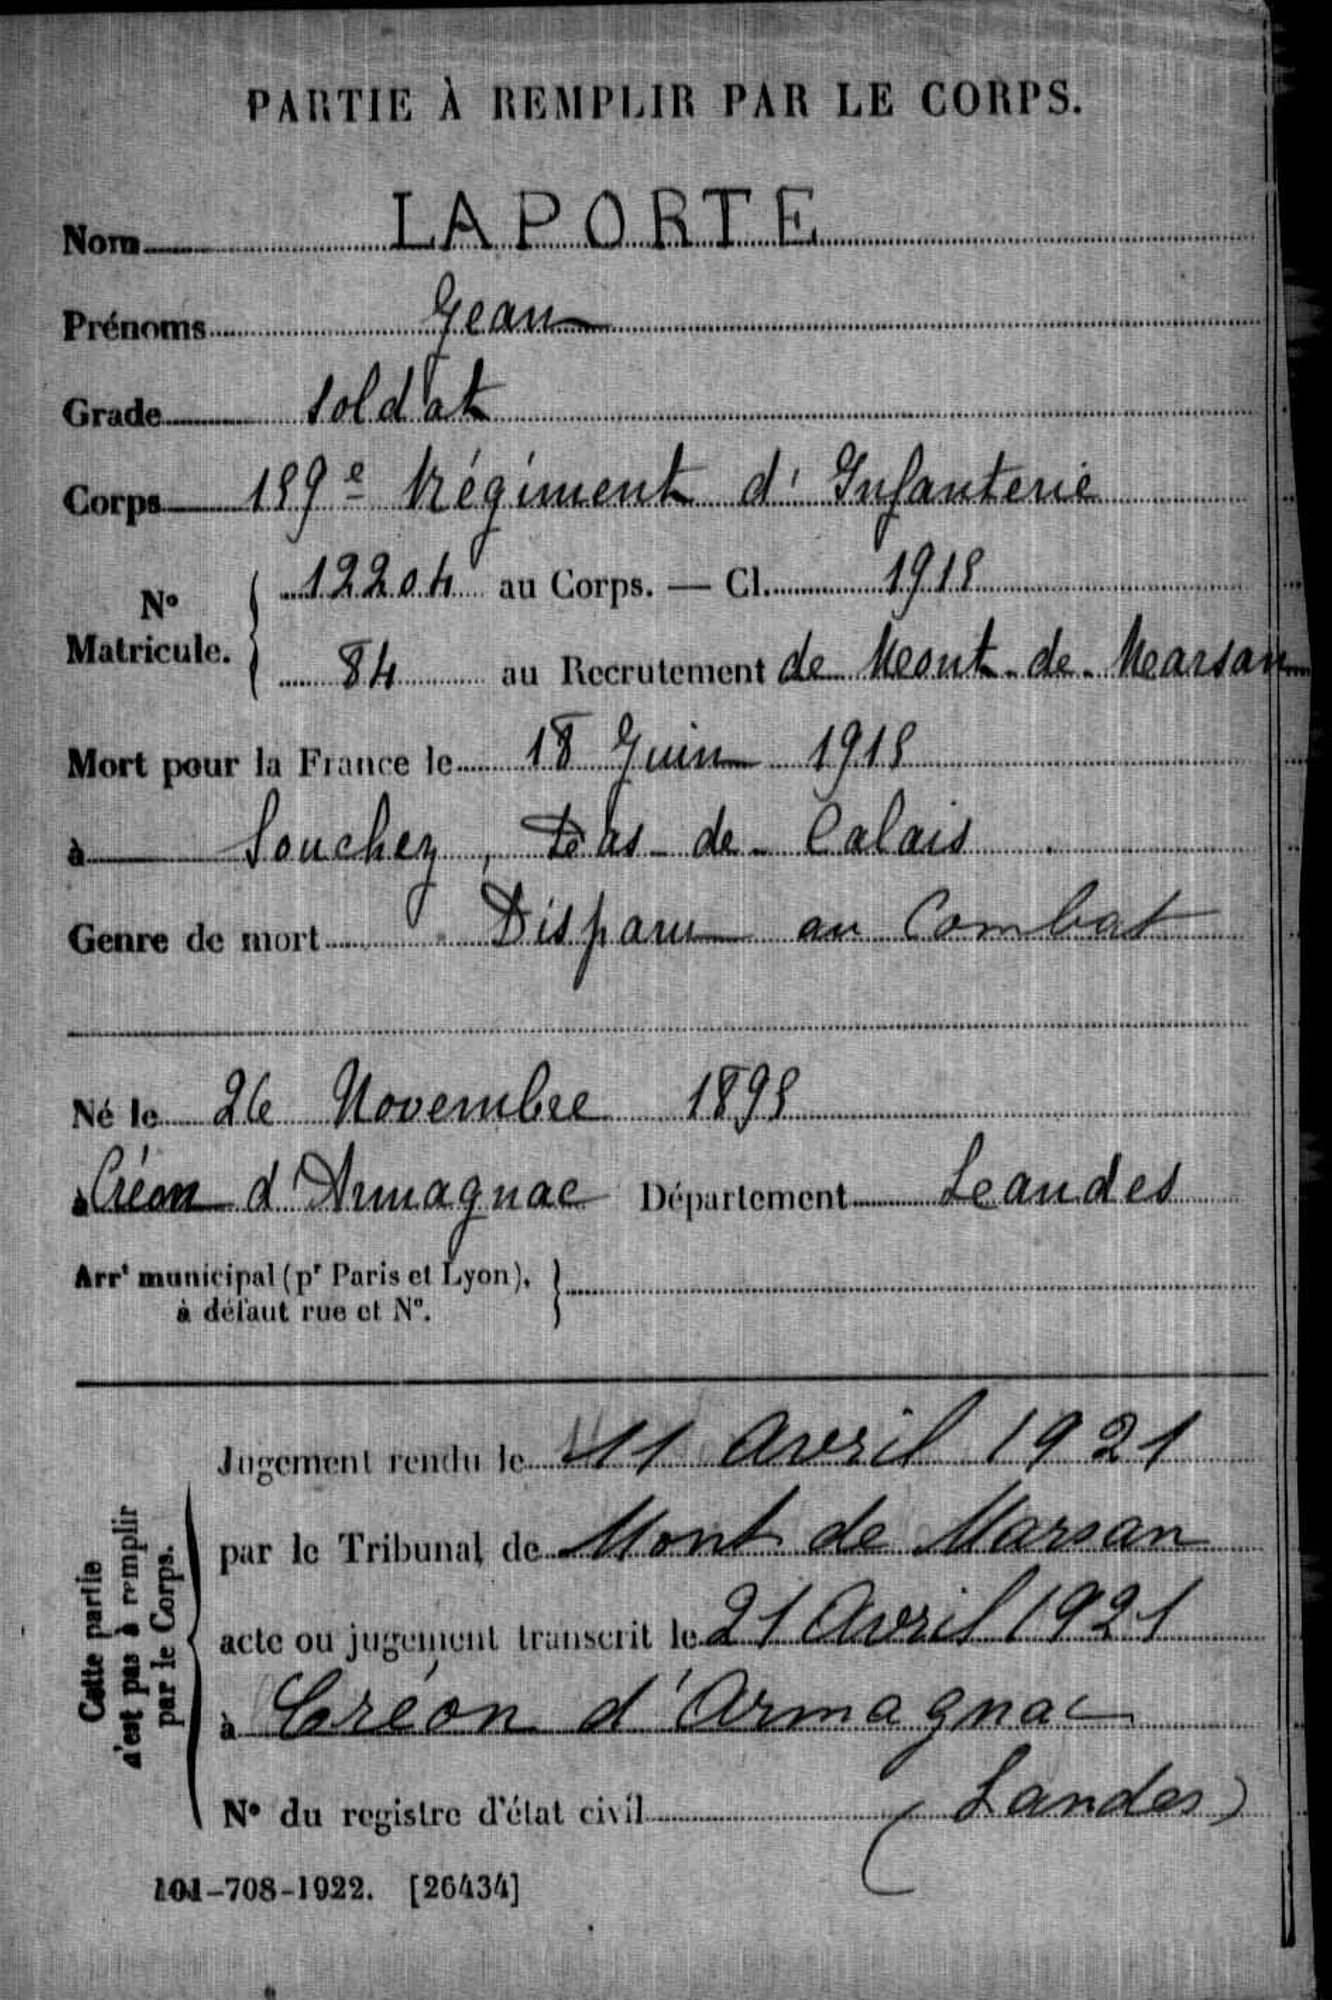 PARTIE À REMPLIR PAR LE CORPS.
Nom LAPORTE
Prénoms Jean
Grade soldat
Corps 189e Régiment d'Infanterie
12204 au Corps. — Cl. 1918
N° Matricule.
84 au Recrutement de Mont-de-Marsan
Mort pour la France le 18 Juin 1918
à Souchez, Pas-de-Calais.
Genre de mort Disparu au Combat
Né le 26 Novembre 1898
à Créon d'Armagnac Département Landes
Arrt municipal (pr Paris et Lyon),
à défaut rue et N°.
Jugement rendu le 11 Avril 1921
par le Tribunal de Mont de Marsan
acte ou jugement transcrit le 21 Avril 1921
à Créon d'Armagnac
N° du registre d'état civil (Landes)
Cette partie
n'est pas à remplir
par le Corps.
101-708-1922. [26434]